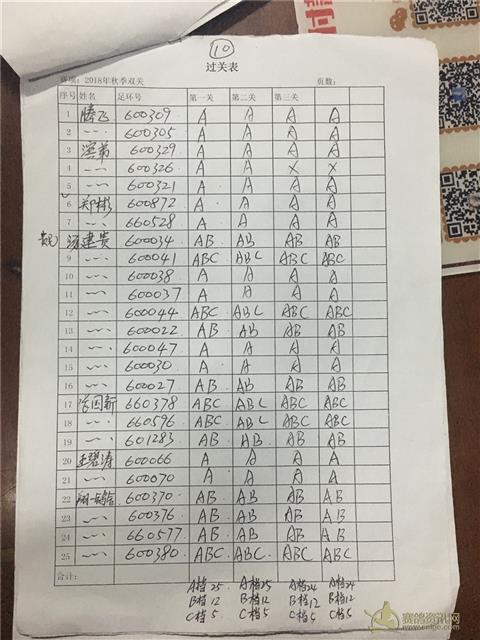 ⑩
过关表
赛项：2018年秋季双关 页数：
序号 姓名 足环号 第一关 第二关 第三关
1 腾飞 600309 A A A A
2 〃 600305 A A A A
3 600329 A A A A
4 〃 600326 A A X X
5 〃 600321 A A A A
6 郑彬 600872 A A A A
7 〃 660528 A A A A
8 汤建贵 600034 AB AB AB AB
9 〃 600041 ABC ABC ABC ABC
10 〃 600038 A A A A
11 〃 600037 A A A A
12 〃 600044 ABC ABC ABC ABC
13 〃 600022 AB AB AB AB
14 〃 600047 A A A A
15 〃 600030 A A A A
16 〃 600027 AB AB AB AB
17 660378 ABC ABC ABC ABC
18 〃 660596 ABC ABC ABC ABC
19 〃 601283 AB AB AB AB
20 王碧涛 600066 A A A A
21 〃 600070 A A A A
22 600370 AB AB AB AB
23 〃 600376 AB AB AB AB
24 〃 660577 AB AB AB AB
25 〃 600380 ABC ABC ABC ABC
合计：
A档25 A档25 A档24 A档24
B档12 B档12 B档12 B档12
C档5 C档5 C档5 C档5
赛鸽资讯网